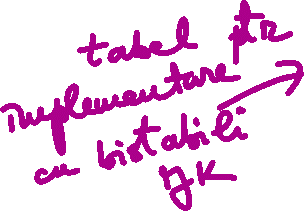 tabel ptr
implementare
cu bistabili
JK